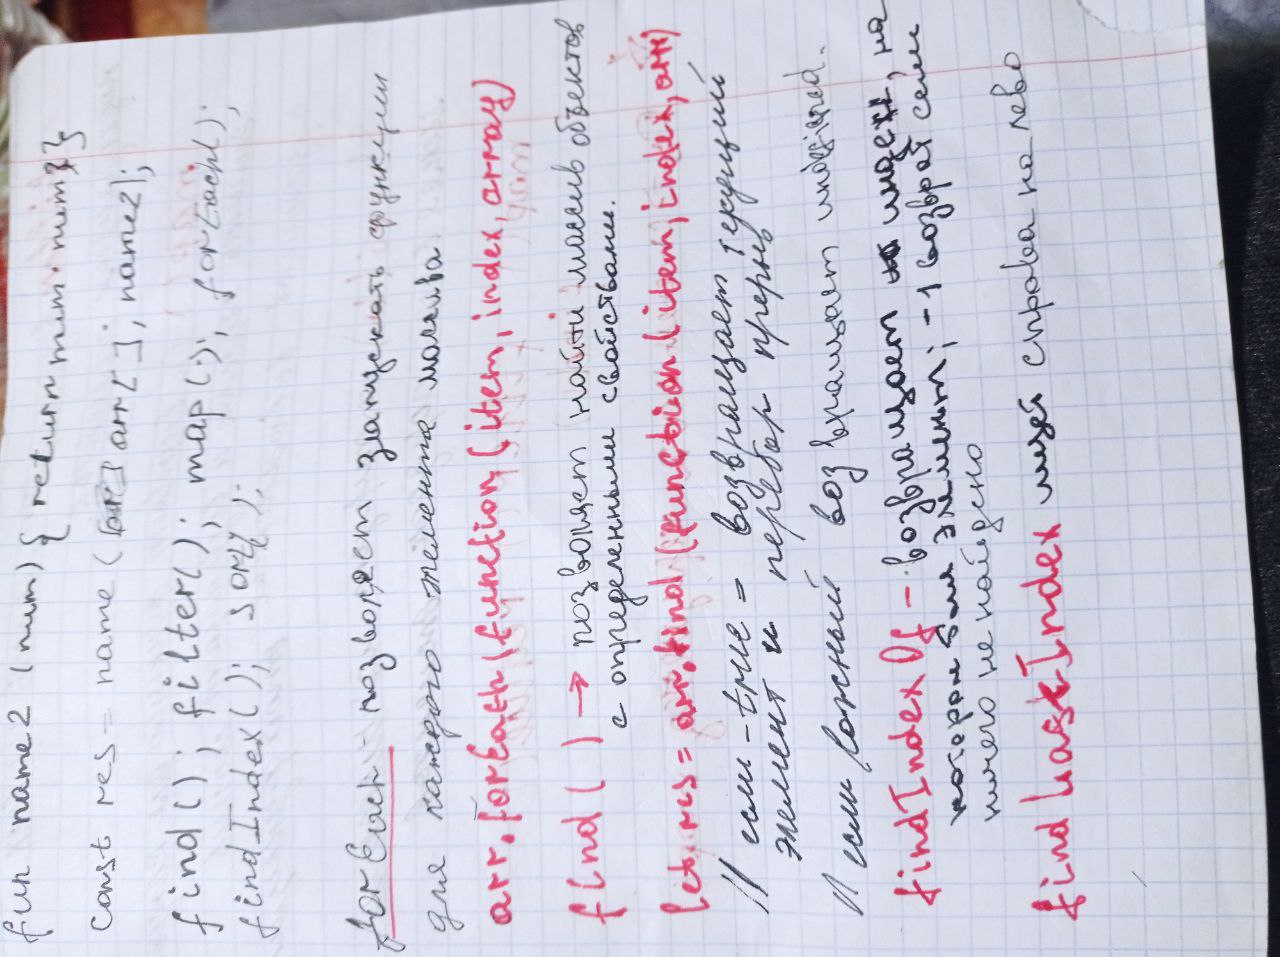 fun name2 (num) { return num·num}}
const res = name ( arr[ ], name2);
find(); filter(); map(); forEach();
findIndex(); sort();
forEach - позволяет запускать функции
для каждого элемента массива
arr.forEach(function(item, index, array)
find() → позволяет найти массив объектов
с определенными свойствами.
let res = arr.find(function(item, index, arr)
// если - true = возвращает текущий
элемент и перебор прерыв
// если ложный возвращает undefined.
findIndexOf - возвращает индекс, на
котором был элемент, -1 возврат если
ничего не найдено
findLastIndex ищет справа на лево